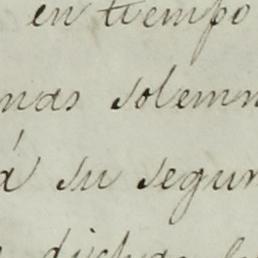 en tiempo
mas solemn
á su segun
dichas